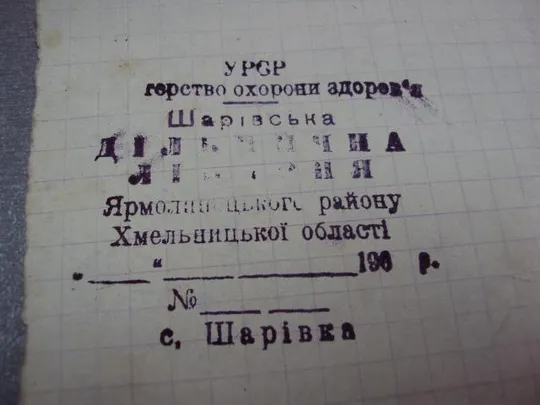 УРСР
терство охорони здоров'я
Шарівська
ДІЛЬНИЧНА
ЛІКАРНЯ
Ярмолинецького району
Хмельницької області
"___"______ ________196 р.
№____ ____
с. Шарівка